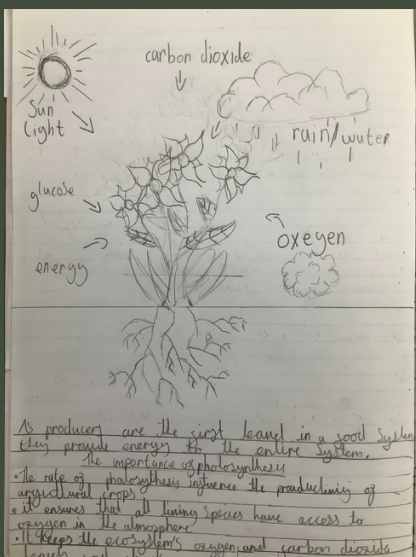 carbon dioxide
Sun
light
rain/water
glucose
oxeyen
energy
As producers are the first leavel in a food System
they provide energy to the entire System.
The importance of photosynthesis
• the rate of photosythesis influence the prouductiviny of
argicultural crops
• it ensures that all lining species have access to
oxygen in the atmosphere
• It keeps the ecosystem's oxygen and carbon dioxide